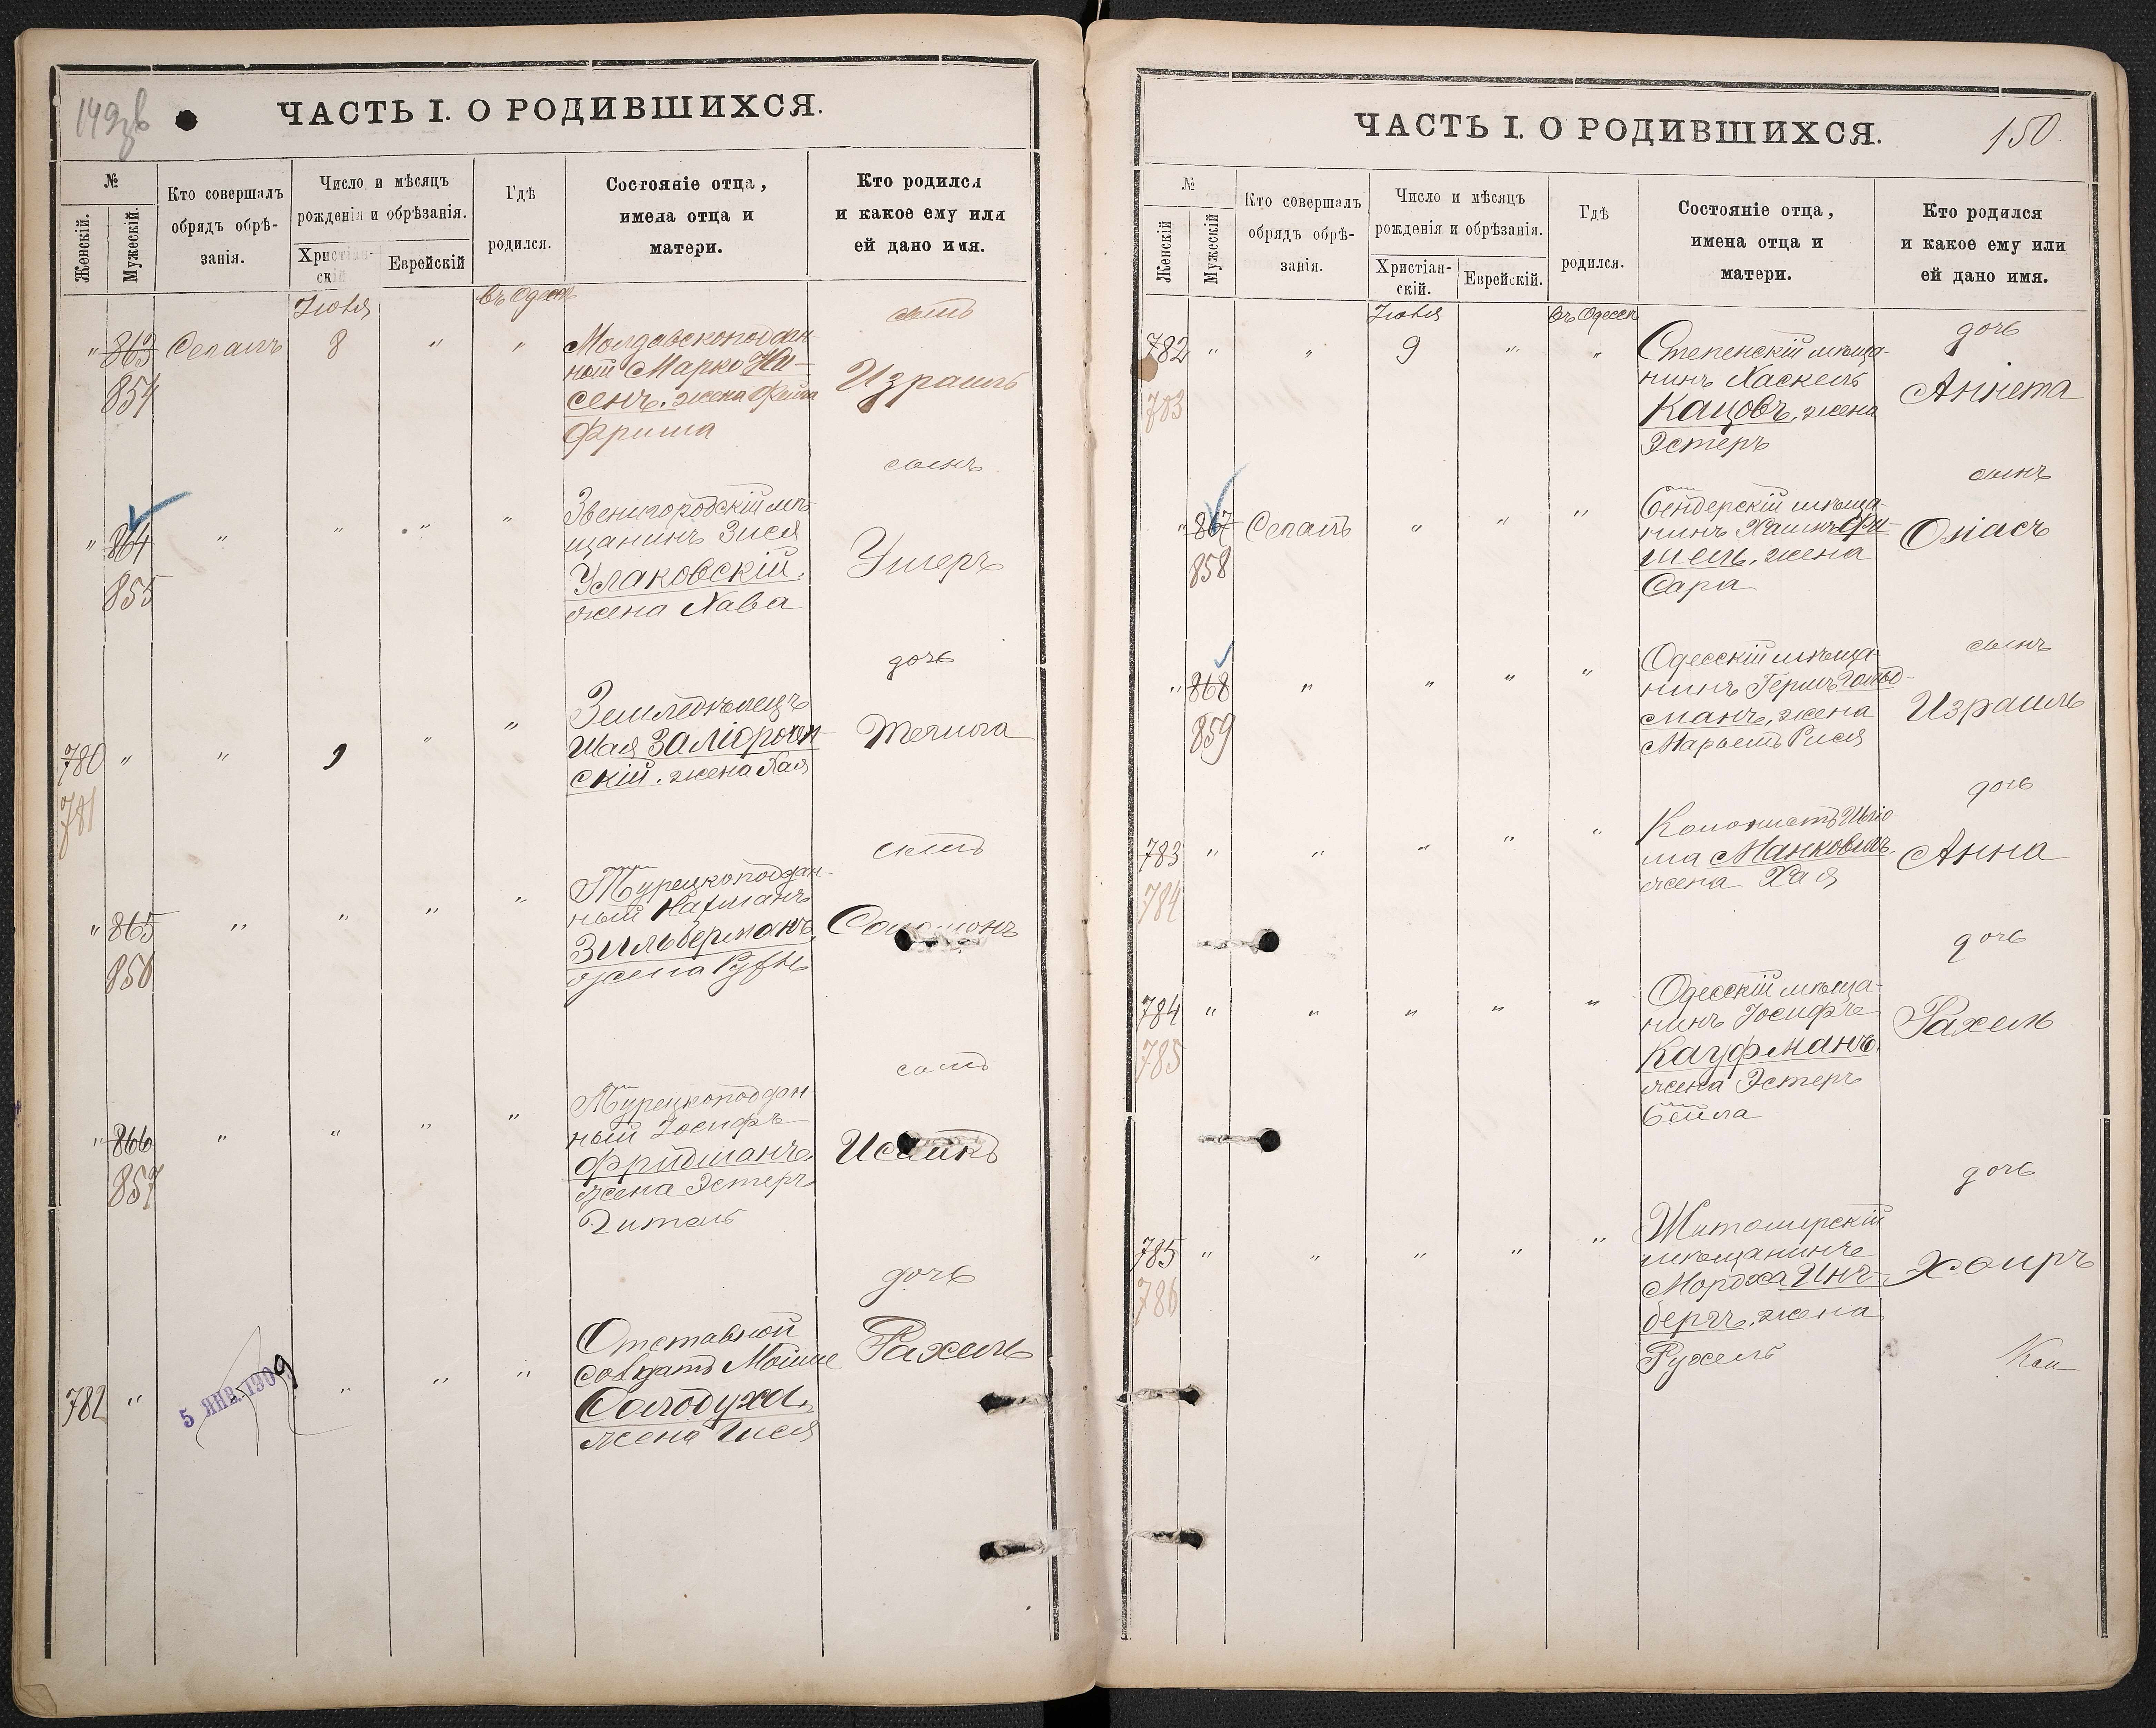 ЧАСТЬ I. О РОДИВШИХСЯ.
№
Женскій.
Мужескій.
Кто совершалъ
обрядъ обрѣ-
занія.
Число и мѣсяцъ
рожденія и обрѣзанія.
Христіан-
скій
Еврейскій
Гдѣ
родился.
Состояніе отца,
имена отца и
матери.
Кто родился
и какое ему или
ей дано имя.
Іюля
въ Одессѣ
сынъ
" 863 8 " "
854
Молдавскоподдан-
ный Марко На-
сенъ. жена Фейга
Фрима
Израиль
сынъ
" 864 " " " "
855
Звенигородскій мѣ-
щанинъ Зися
Улаковскій.
жена Хава
Ушеръ
дочь
780 " " 9 " "
781
Земледѣлецъ
Шая
скій. жена Хая
сынъ
" 865 " " " "
856
Турецкоподдан-
ный Нахманъ
Зильберманъ
жена Рухль
Соломонъ
сынъ
" 866 " " " "
857
Турецкоподдан-
ный Іосифъ
Фридманъ
жена Эстеръ
Гитель
Исаакъ
дочь
782 " " " "
5 ЯНВ. 1909
Отставной
солдатъ Мойше
Солодуха.
жена
Рахель
ЧАСТЬ I. О РОДИВШИХСЯ.
150.
№
Женскій
Мужескій
Кто совершалъ
обрядъ обрѣ-
занія.
Число и мѣсяцъ
рожденія и обрѣзанія.
Христіан-
скій.
Еврейскій.
Гдѣ
родился.
Состояніе отца,
имена отца и
матери.
Кто родился
и какое ему или
ей дано имя.
Іюля
въ Одессѣ
дочь
782 " " 9 " "
783
Степенскій мѣща-
нинъ Хаскель
Кацовъ, жена
Эстеръ
Аннета
сынъ
" 867 " " "
858
Бендерскій мѣща-
нинъ Хаимъ Фи-
шель. жена
Сара
сынъ
" 868 " " " "
859
Одесскій мѣща-
нинъ Гершъ Гольд-
манъ, жена
Марьемъ Рися
Израиль
дочь
783 " " " " "
784
Колонистъ Шлио-
ма Манковичъ.
жена Хая
Анна
дочь
784 " " " " "
785
Одесскій мѣща-
нинъ Іосифъ
Кауфманъ.
жена Эстеръ
Бейла
Рахель
дочь
785 " " " " "
786
Житомирскій
мѣщанинъ
Мордха Инъ-
бергъ. жена
Рухель